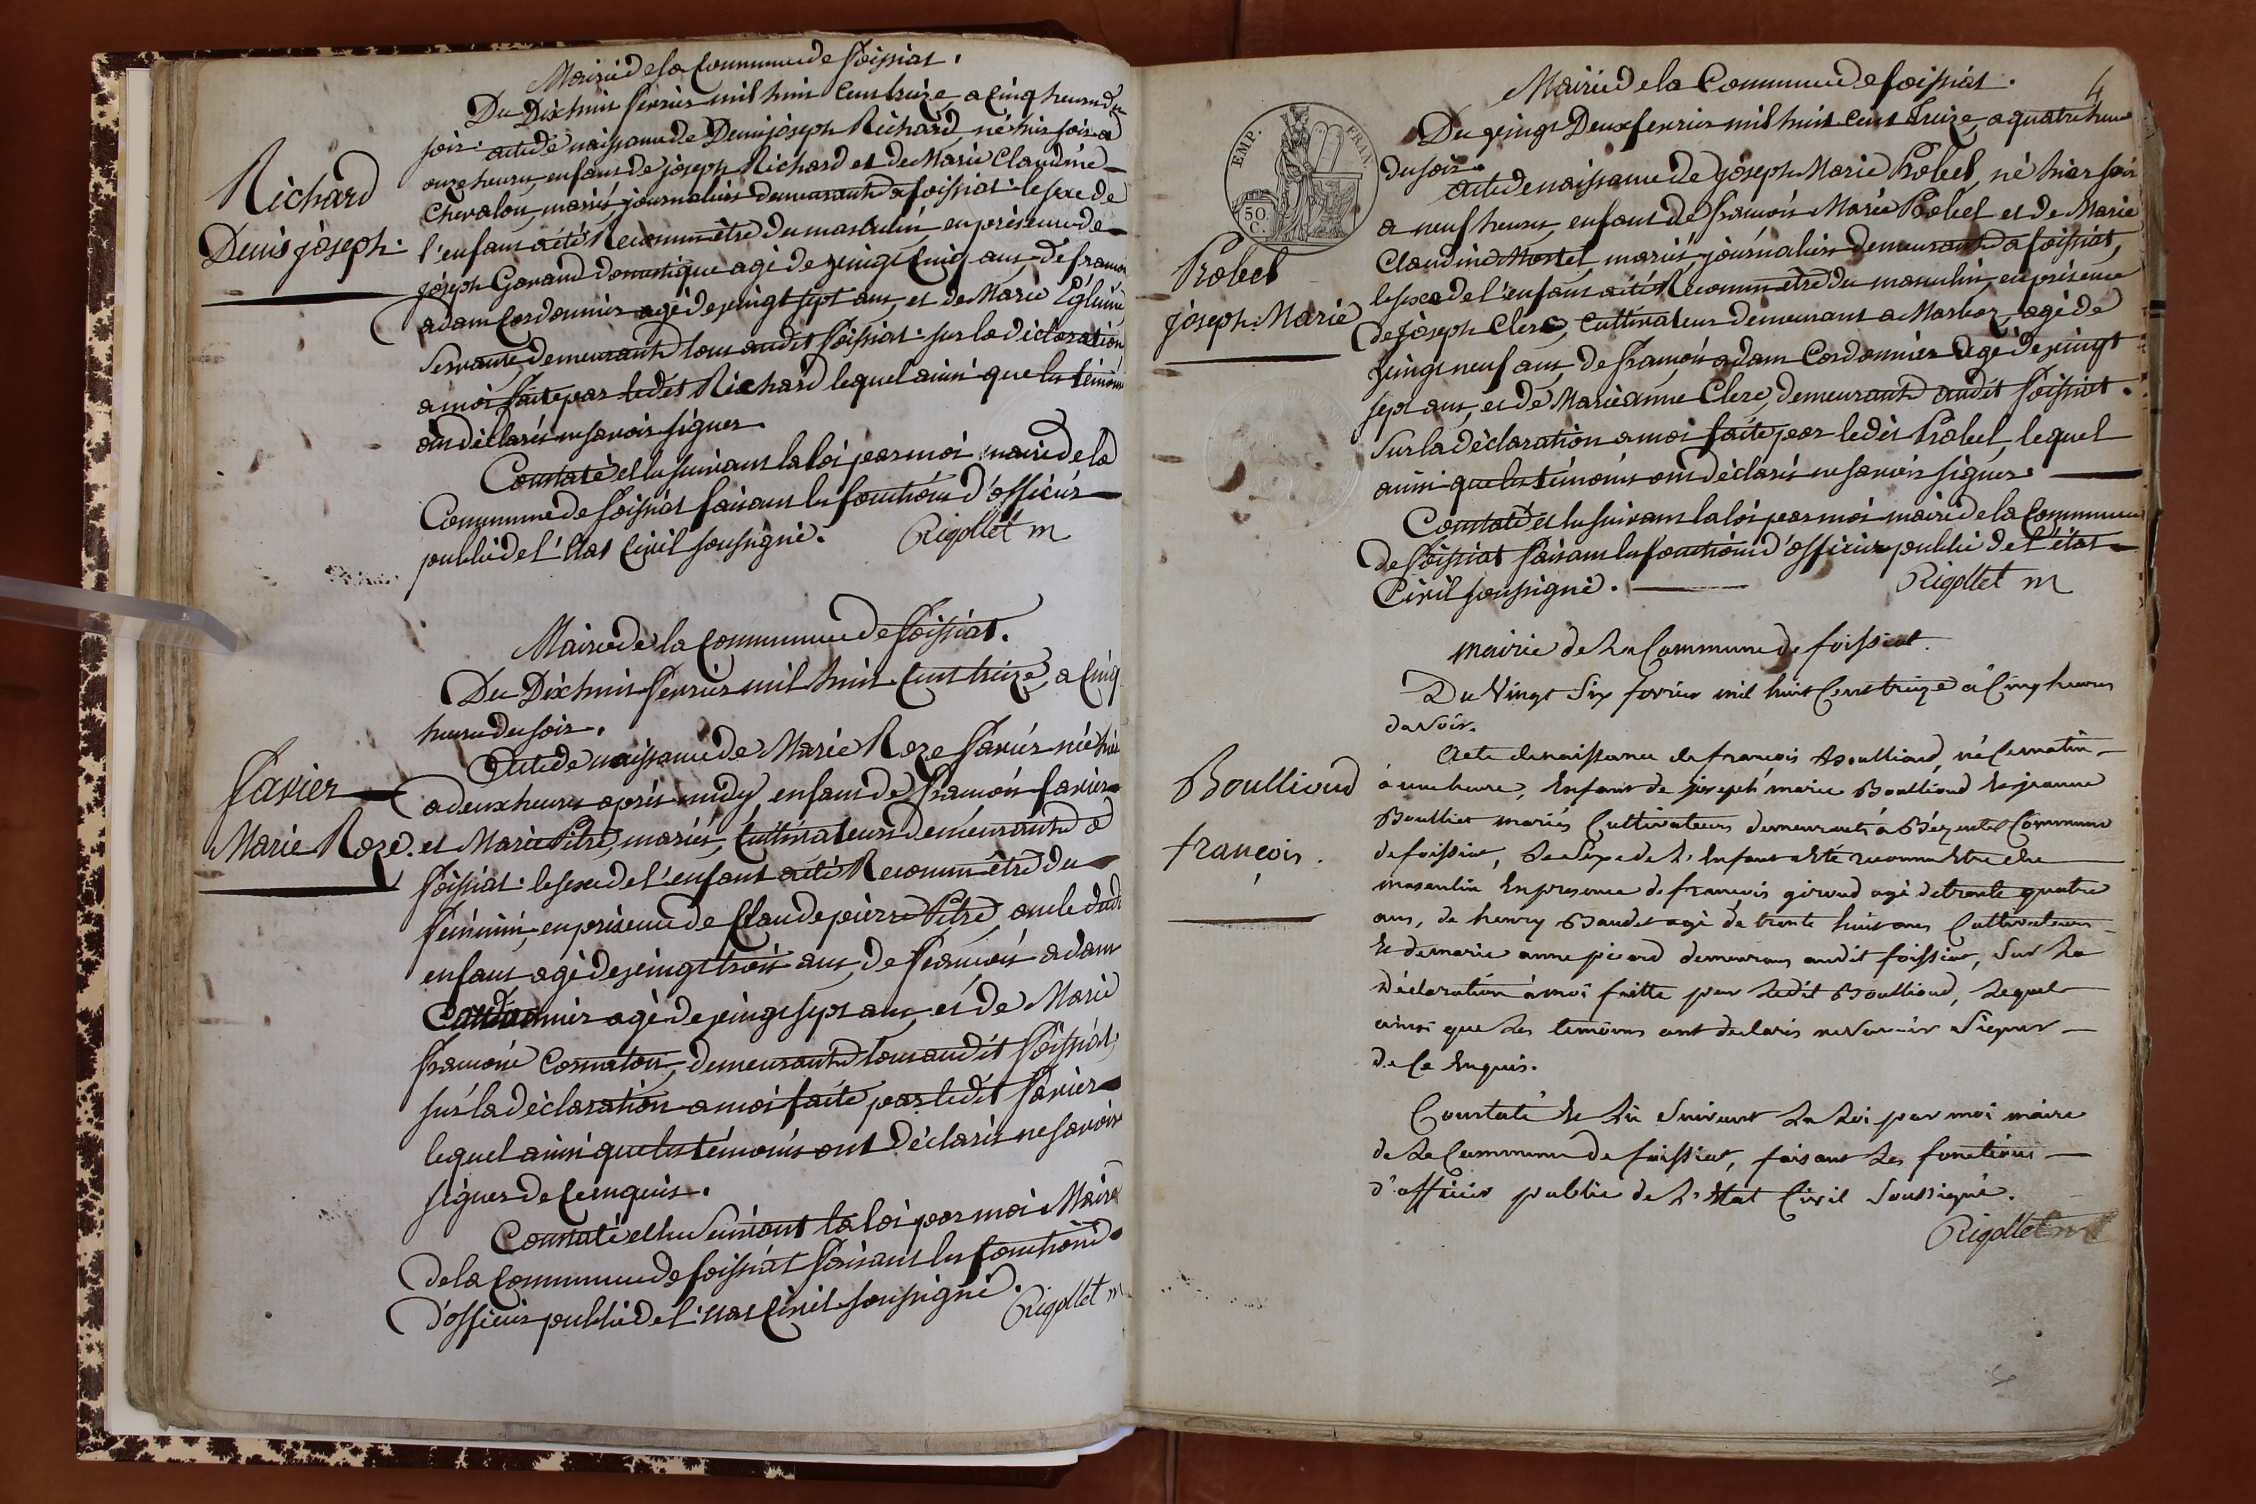 Mairie de la Commune de foissiat.
Du Dixhuit fevrier mil huit Cent treize, a Cinq heures du
soir. acte de naissance de Denis joseph Richard, né hier soir a
onze heures, enfant de joseph Richard et de Marie Claudine
Chevalon, mariés, journaliers demeurants a foissiat. le sexe de
l'enfant a été Reconnu être du masculin, en présence de
joseph Gavand domestique agé de vingt Cinq ans, de francois
adam Cordonnier agé de vingt sept ans, et de Marie
Servante, demeurants tous audit foissiat. sur la déclaration
a moi faite par ledit Richard lequel ainsi que les témoins
ont déclarés ne savoir signer.
Constaté et lu suivant la loi par moi maire de la
Commune de foissiat faisant les fonctions d'officier
public de l'état Civil soussigné. Rigollet m
Richard
Denis joseph.
Mairie de la Commune de foissiat.
Du Dixhuit fevrier mil huit Cent treize, a Cinq
heures du soir.
Acte de naissance de Marie Roze favier née hier
a deux heures après midy, enfant de francois favier
et Marie Pitre, mariés, Cultivateurs demeurants a
foissiat. le sexe de l'enfant a été Reconnu être du
féminin, en présence de Claude pierre Pitre, oncle dudit
enfant agé de vingt trois ans, de francois adam
Cordonnier agé de vingt sept ans, et de Marie
francoise Cornaton, demeurants tous audit foissiat,
sur la déclaration a moi faite par ledit favier
lequel ainsi que les témoins ont déclarés ne savoir
signer de Ce enquis.
Constaté et lu suivant la loi par moi Maire
de la Commune de foissiat faisant les fonctions
d'officier public de l'état Civil soussigné.
Rigollet m
favier
Marie Roze.
4
Mairie de la Commune de foissiat.
Du vingt Deux fevrier mil huit Cent treize, a quatre heures
du soir.
Acte de naissance de joseph Marie Probel, né hier soir
a neuf heures, enfant de francois Marie Probel et de Marie
Claudine Mortel, mariés, journaliers demeurants a foissiat,
le sexe de l'enfant a été Reconnu être du masculin, en présence
de joseph Clerc, Cultivateur demeurant a Marboz, agé de
vingt neuf ans, de francois adam Cordonnier agé de vingt
sept ans, et de Marie anne Clerc, demeurants audit foissiat.
Sur la déclaration a moi faite par ledit Probel, lequel
ainsi que les témoins ont déclarés ne savoir signer.
Constaté et lu suivant la loi par moi maire de la Commune
de foissiat faisant les fonctions d'officier public de l'état
Civil soussigné. Rigollet m
EMP. FRAN.
50
C.
Probel
joseph Marie
Mairie de La Commune de foissiat.
Du Vingt Six fevrier mil huit Cent treize à Cinq heures
du Soir.
Acte de naissance de francois Boullioud, né Ce matin
à une heure, Enfant de joseph marie Boullioud Et jeanne
Boullier mariés Cultivateurs demeurants à Bezentet Commune
de foissiat, Le Sexe de L'Enfant a Eté reconnu Etre du
masculin En presence de francois giroud agé de trente quatre
ans, de henry Baudet agé de trente huit ans Cultivateurs
Et de marie anne picard demeurans audit foissiat, Sur La
Déclaration à moi faitte par Ledit Boullioud, Lequel
ainsi que Les temoins ont declarés ne Savoir Signer
de Ce Enquis.
Constaté Et Lû Suivant La Loi par moi maire
de La Commune de foissiat, faisant Les fonctions
d'officier public de L'Etat Civil Soussigné.
Rigollet m
Boullioud
françois.